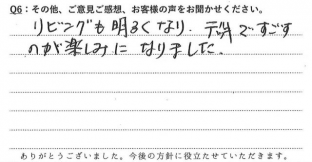 Q6：その他、ご意見ご感想、お客様の声をお聞かせください。
リビングも明るくなり、デッキですごす
のが楽しみになりました。
ありがとうございました。今後の方針に役立たせていただきます。